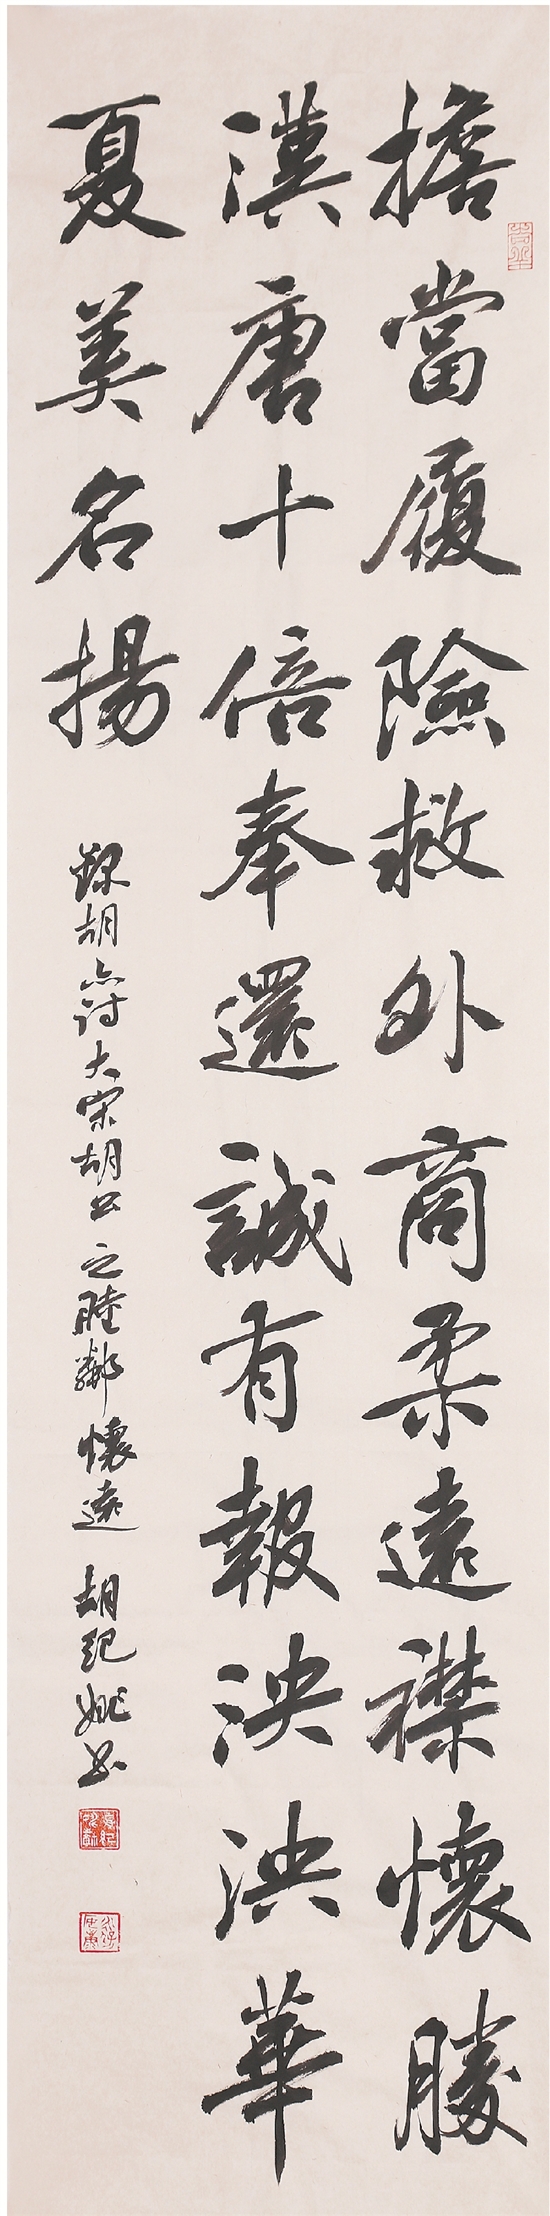 擔當履險救外商柔遠襟懷勝
漢唐十倍奉還誠有報泱泱華
夏美名揚
錄胡亦詩大宋胡公之睦鄰懷遠 胡紀姚書